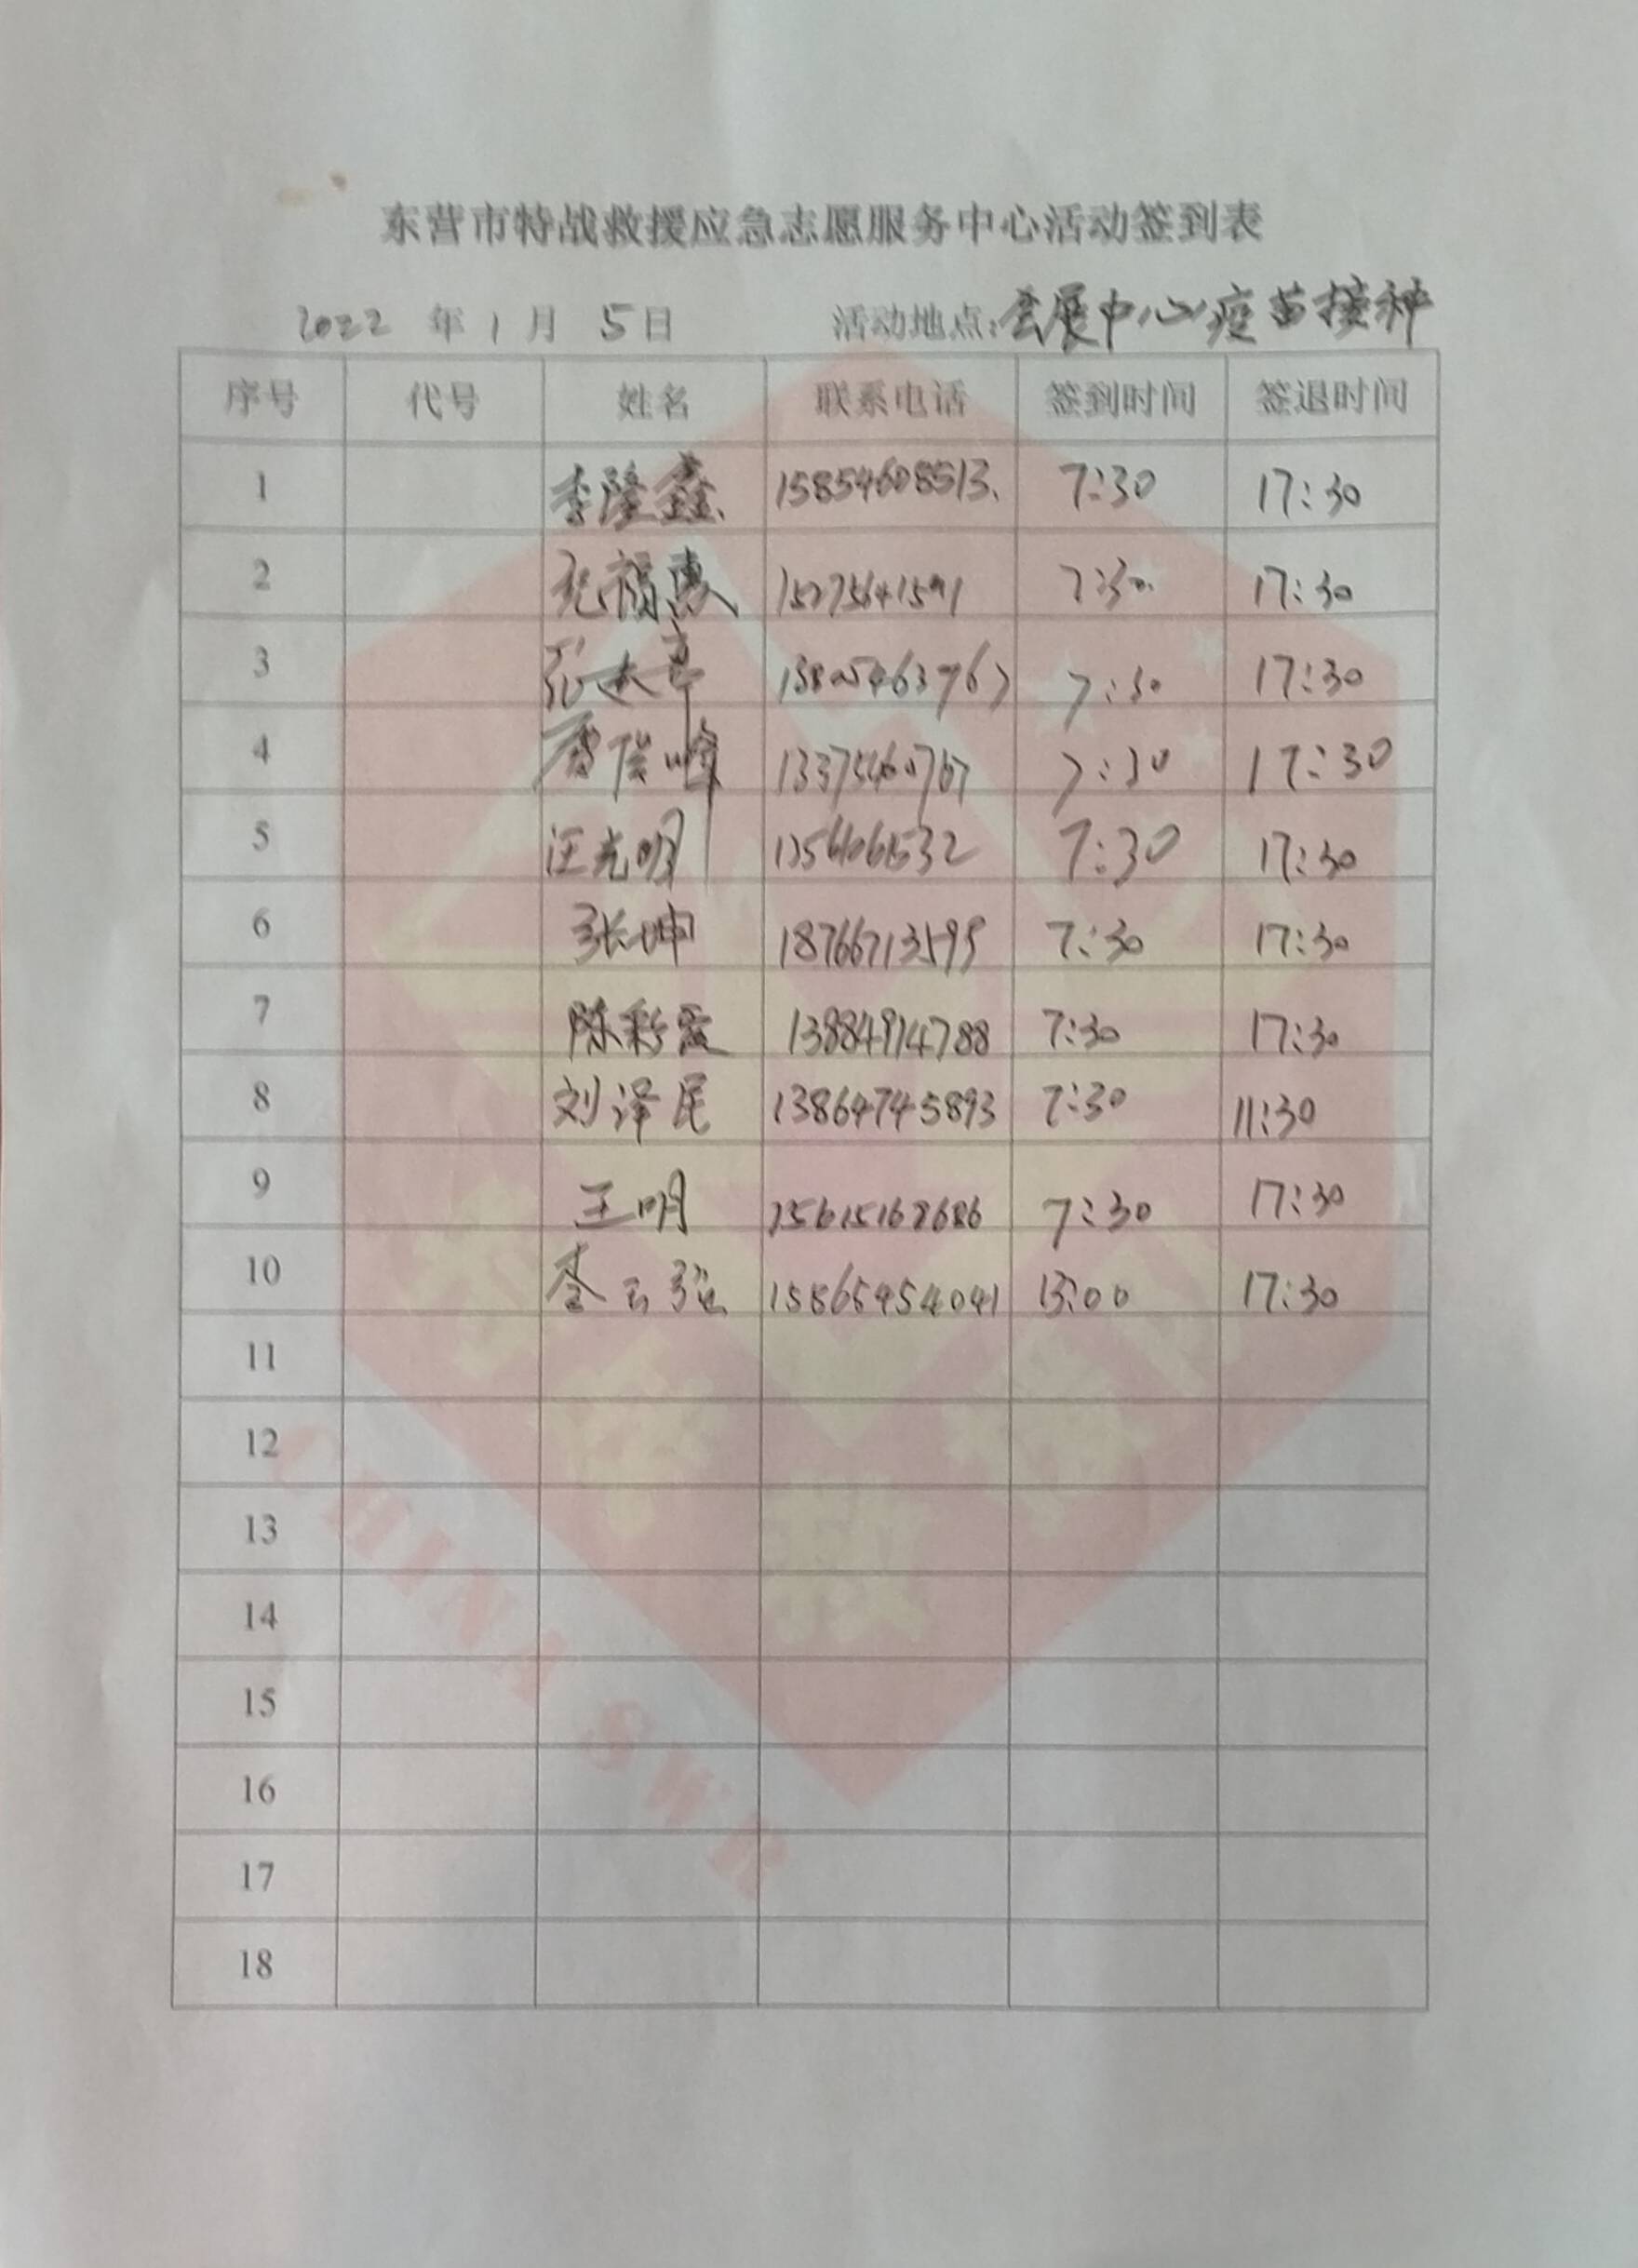 东营市特战救援应急志愿服务中心活动签到表
2022 年 1 月 5日 活动地点:会展中心疫苗接种
序号 代号 姓名 联系电话 签到时间 签退时间
1 李隆鑫 15854608513 7:30 17:30
2 福惠 15275641591 7:30 17:30
3 张 7:30 17:30
4 峰 7:30 17:30
5 汪光明 7:30 17:30
6 张坤 18766713599 7:30 17:30
7 陈彩霞 13884914788 7:30 17:30
8 刘泽民 13864745893 7:30 11:30
9 王明 15615168686 7:30 17:30
10 李云强 15865454041 13:00 17:30
11
12
13
14
15
16
17
18
CHINA SWR